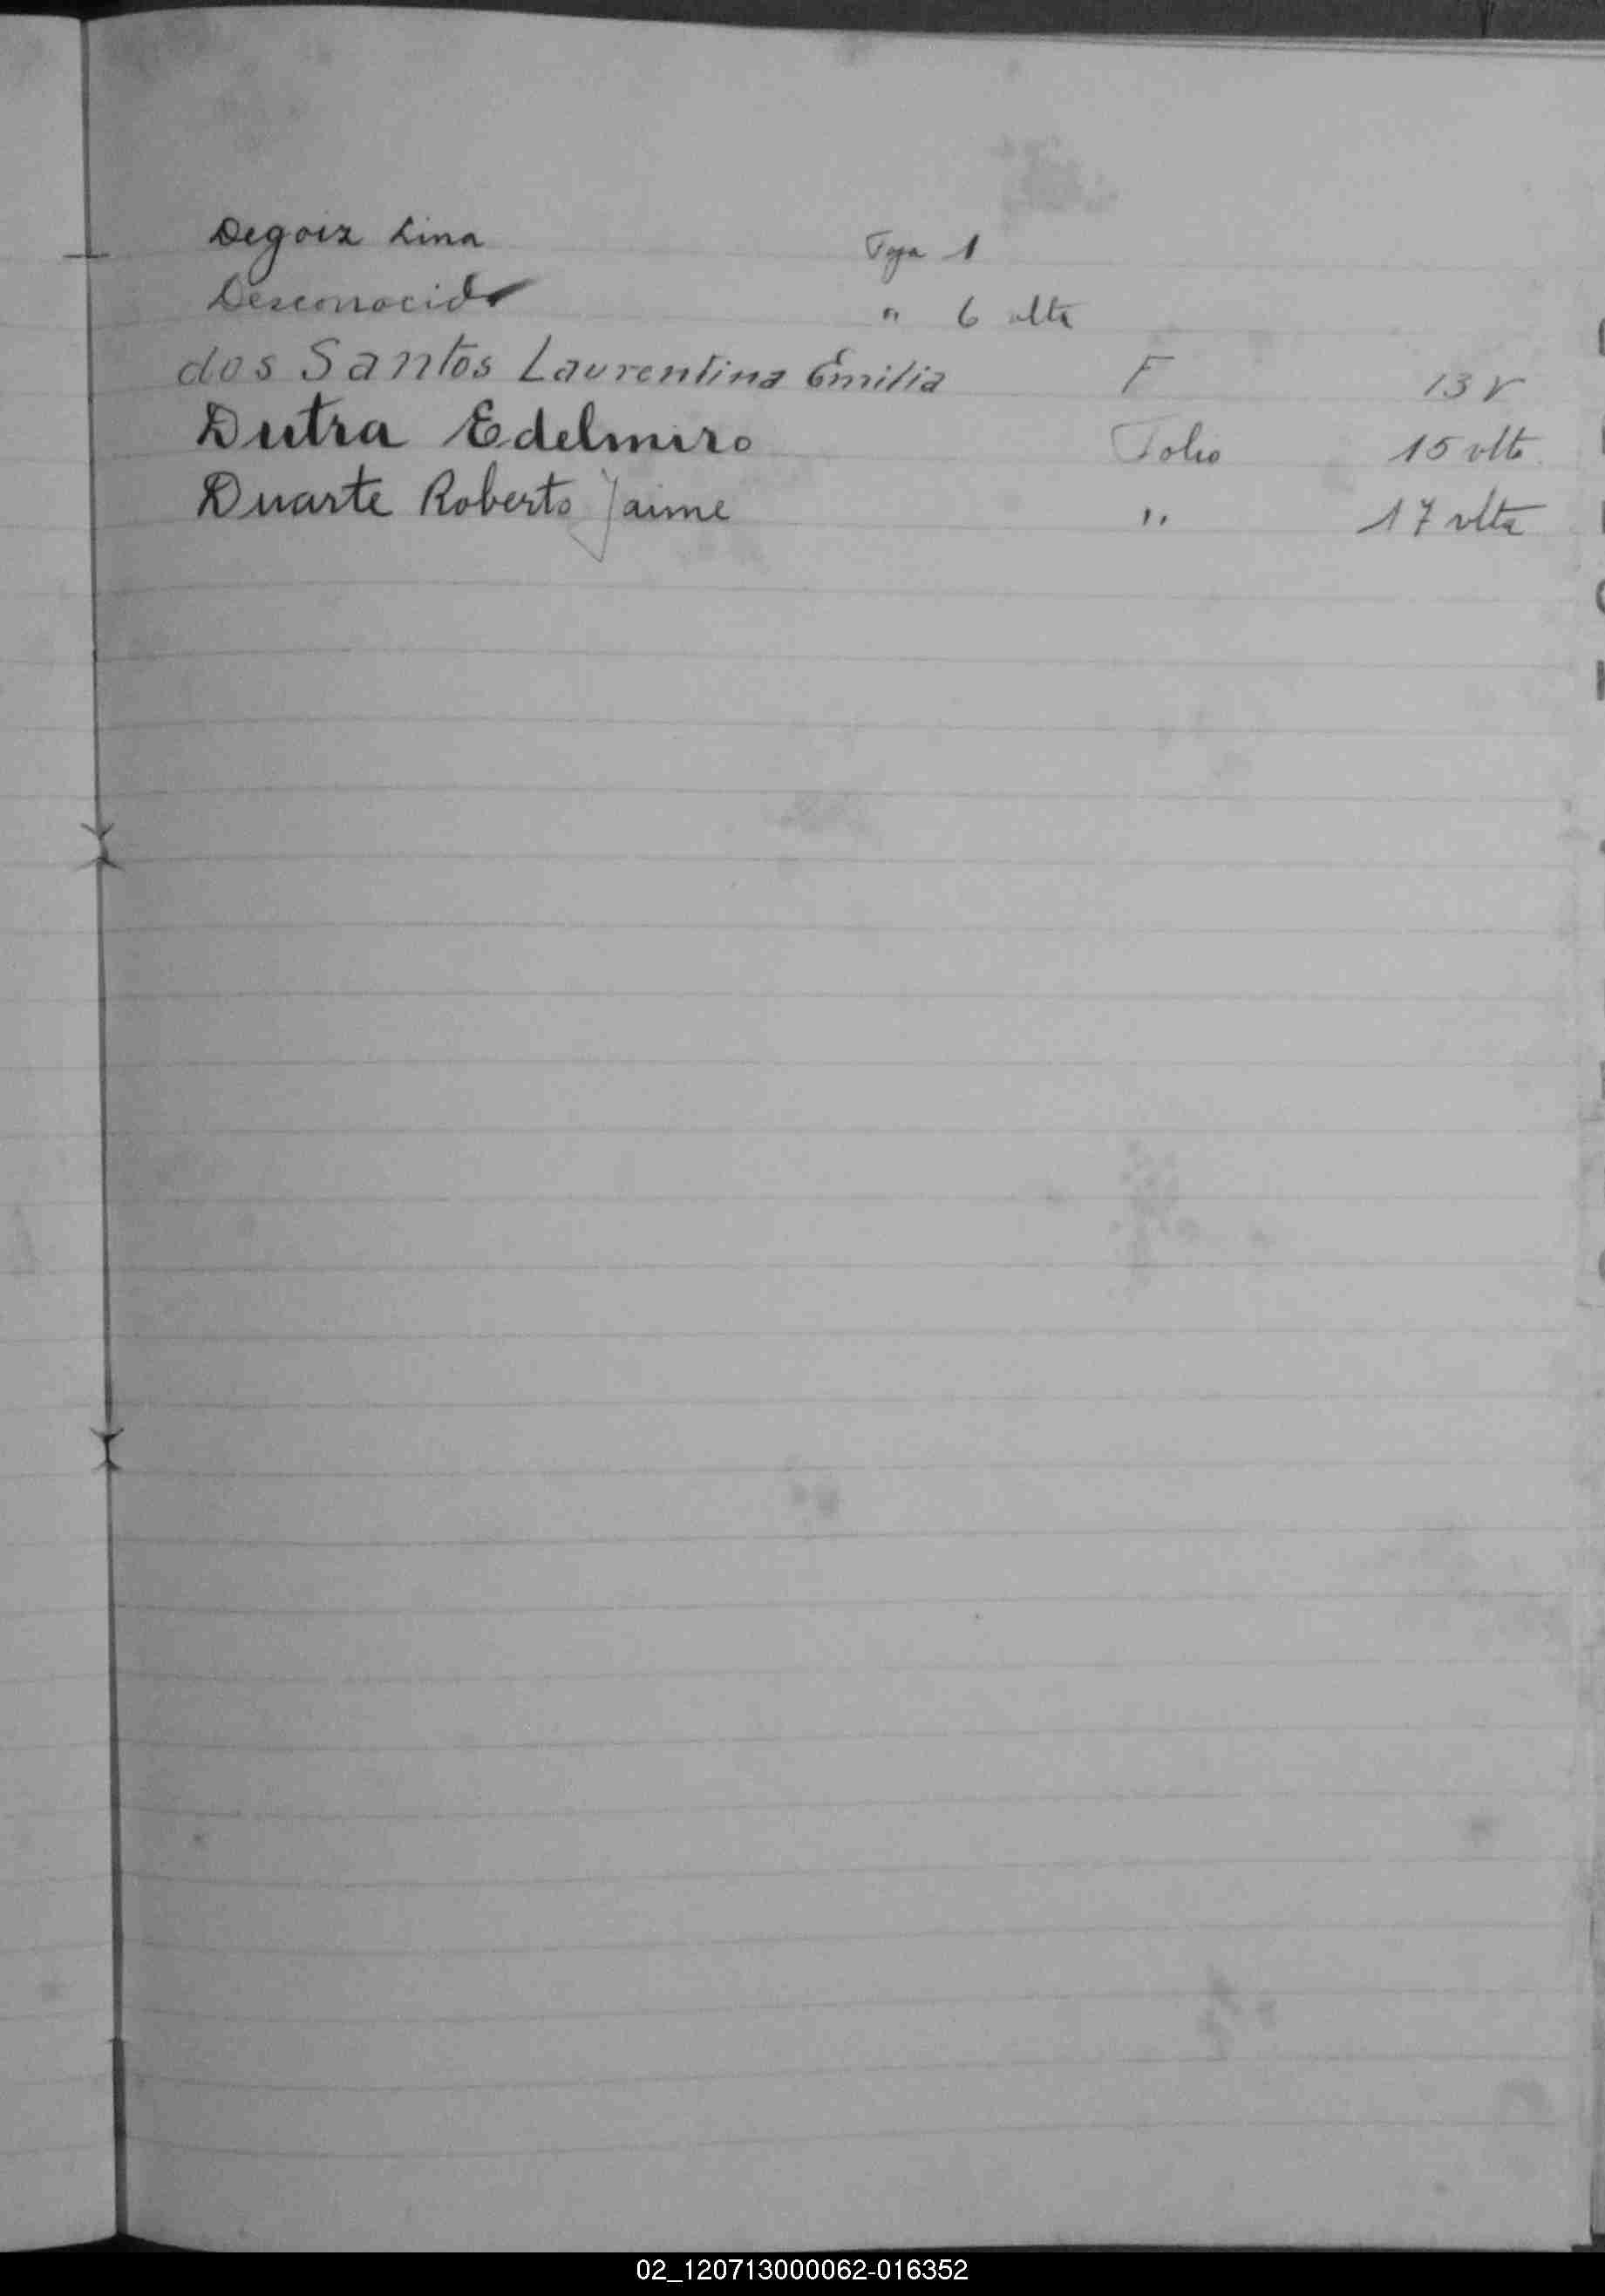 Degoiz Lina Foja 1
Desconocido " 6 vlta
dos Santos Laurentina Emilia F 13 V
Dutra Edelmiro Folio 15 vlto.
Duarte Roberto Jaime " 17 vlta
02_120713000062-016352